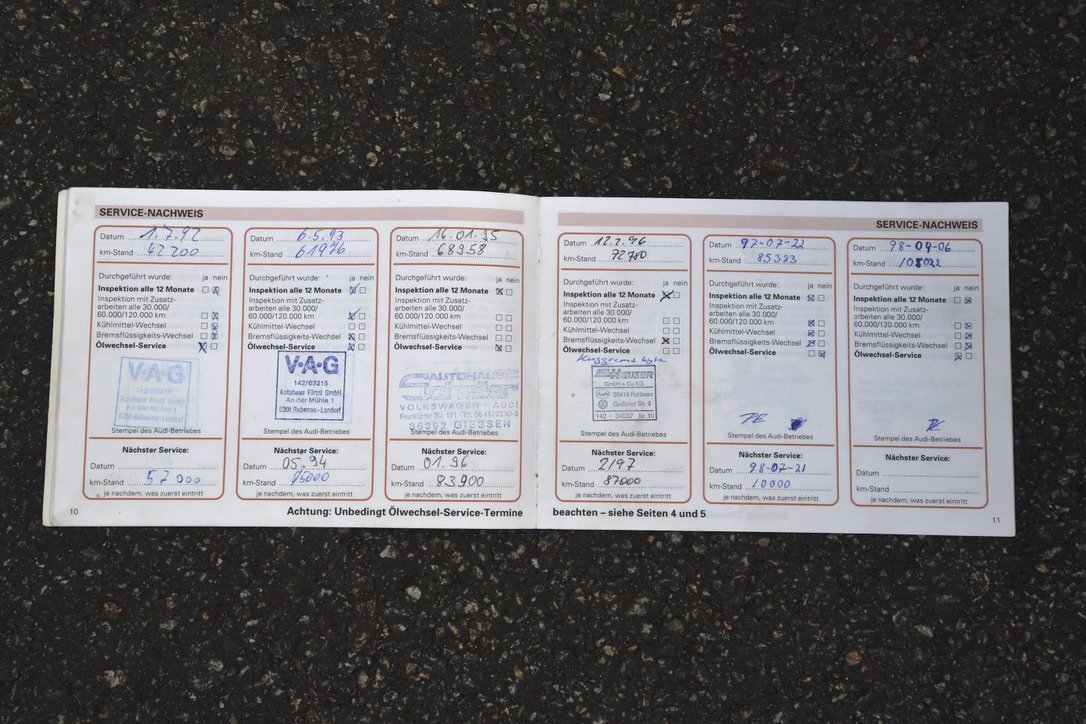 SERVICE-NACHWEIS
Datum 1.7.92
km-Stand 42200
Durchgeführt wurde: ja nein
Inspektion alle 12 Monate
Inspektion mit Zusatz-
arbeiten alle 30.000/
60.000/120.000 km
Kühlmittel-Wechsel
Bremsflüssigkeits-Wechsel
Ölwechsel-Service
V·A·G
142/63215
Autohaus Förstl GmbH
An der Mühle 1
6301 Rabenau-Londorf
Stempel des Audi-Betriebes
Nächster Service:
Datum
km-Stand 57000
je nachdem, was zuerst eintritt
Datum 6.5.93
km-Stand 61976
Durchgeführt wurde: ja nein
Inspektion alle 12 Monate
Inspektion mit Zusatz-
arbeiten alle 30.000/
60.000/120.000 km
Kühlmittel-Wechsel
Bremsflüssigkeits-Wechsel
Ölwechsel-Service
V·A·G
142/63215
Autohaus Förstl GmbH
An der Mühle 1
6301 Rabenau-Londorf
Stempel des Audi-Betriebes
Nächster Service:
Datum 05.94
km-Stand 75000
je nachdem, was zuerst eintritt
Datum 16.01.95
km-Stand 68958
Durchgeführt wurde: ja nein
Inspektion alle 12 Monate
Inspektion mit Zusatz-
arbeiten alle 30.000/
60.000/120.000 km
Kühlmittel-Wechsel
Bremsflüssigkeits-Wechsel
Ölwechsel-Service
AUTOHAUS
VOLKSWAGEN - AUDI
35392 GIESSEN
Stempel des Audi-Betriebes
Nächster Service:
Datum 01.96
km-Stand 83900
je nachdem, was zuerst eintritt
10
Achtung: Unbedingt Ölwechsel-Service-Termine
SERVICE-NACHWEIS
Datum 12.2.96
km-Stand 72780
Durchgeführt wurde: ja nein
Inspektion alle 12 Monate
Inspektion mit Zusatz-
arbeiten alle 30.000/
60.000/120.000 km
Kühlmittel-Wechsel
Bremsflüssigkeits-Wechsel
Ölwechsel-Service
GmbH + Co KG
35415 Pohlheim
Gießener Str. 9
142 - 34037 Nr. 10
Stempel des Audi-Betriebes
Nächster Service:
Datum 2/97
km-Stand 87000
je nachdem, was zuerst eintritt
Datum 97-07-22
km-Stand 85383
Durchgeführt wurde: ja nein
Inspektion alle 12 Monate
Inspektion mit Zusatz-
arbeiten alle 30.000/
60.000/120.000 km
Kühlmittel-Wechsel
Bremsflüssigkeits-Wechsel
Ölwechsel-Service
Stempel des Audi-Betriebes
Nächster Service:
Datum 98-07-21
km-Stand 10000
je nachdem, was zuerst eintritt
Datum 98-09-06
km-Stand 105022
Durchgeführt wurde: ja nein
Inspektion alle 12 Monate
Inspektion mit Zusatz-
arbeiten alle 30.000/
60.000/120.000 km
Kühlmittel-Wechsel
Bremsflüssigkeits-Wechsel
Ölwechsel-Service
Stempel des Audi-Betriebes
Nächster Service:
Datum
km-Stand
je nachdem, was zuerst eintritt
beachten – siehe Seiten 4 und 5
11